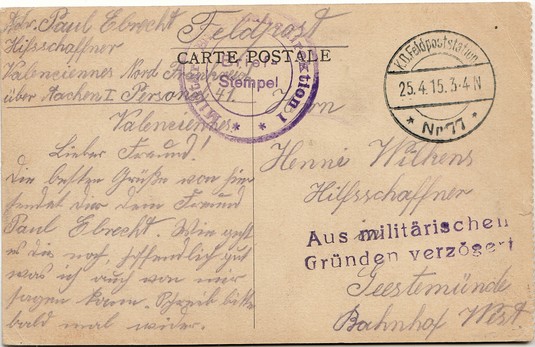 Abs. Paul Ebrecht
Hilfsschaffner
Valenciennes Nord Frankreich
über Aachen I Personal
Feldpost
CARTE POSTALE
Brief
Stempel
K.D. Feldpoststation
25.4.15. 3-4 N
* Nr 77 *
Valenciennes
Lieber Freund!
Die besten Grüße von hier
sendet dir dein Freund
Paul Ebrecht. Wie geht
es dir noch, hoffendlich gut
was ich auch von mir
sagen kann. Schreib bitte
bald mal wider.
Herrn
Henni Wilkens
Hilfsschaffner
Aus militärischen
Gründen verzögert
Geestemünde
Bahnhof West